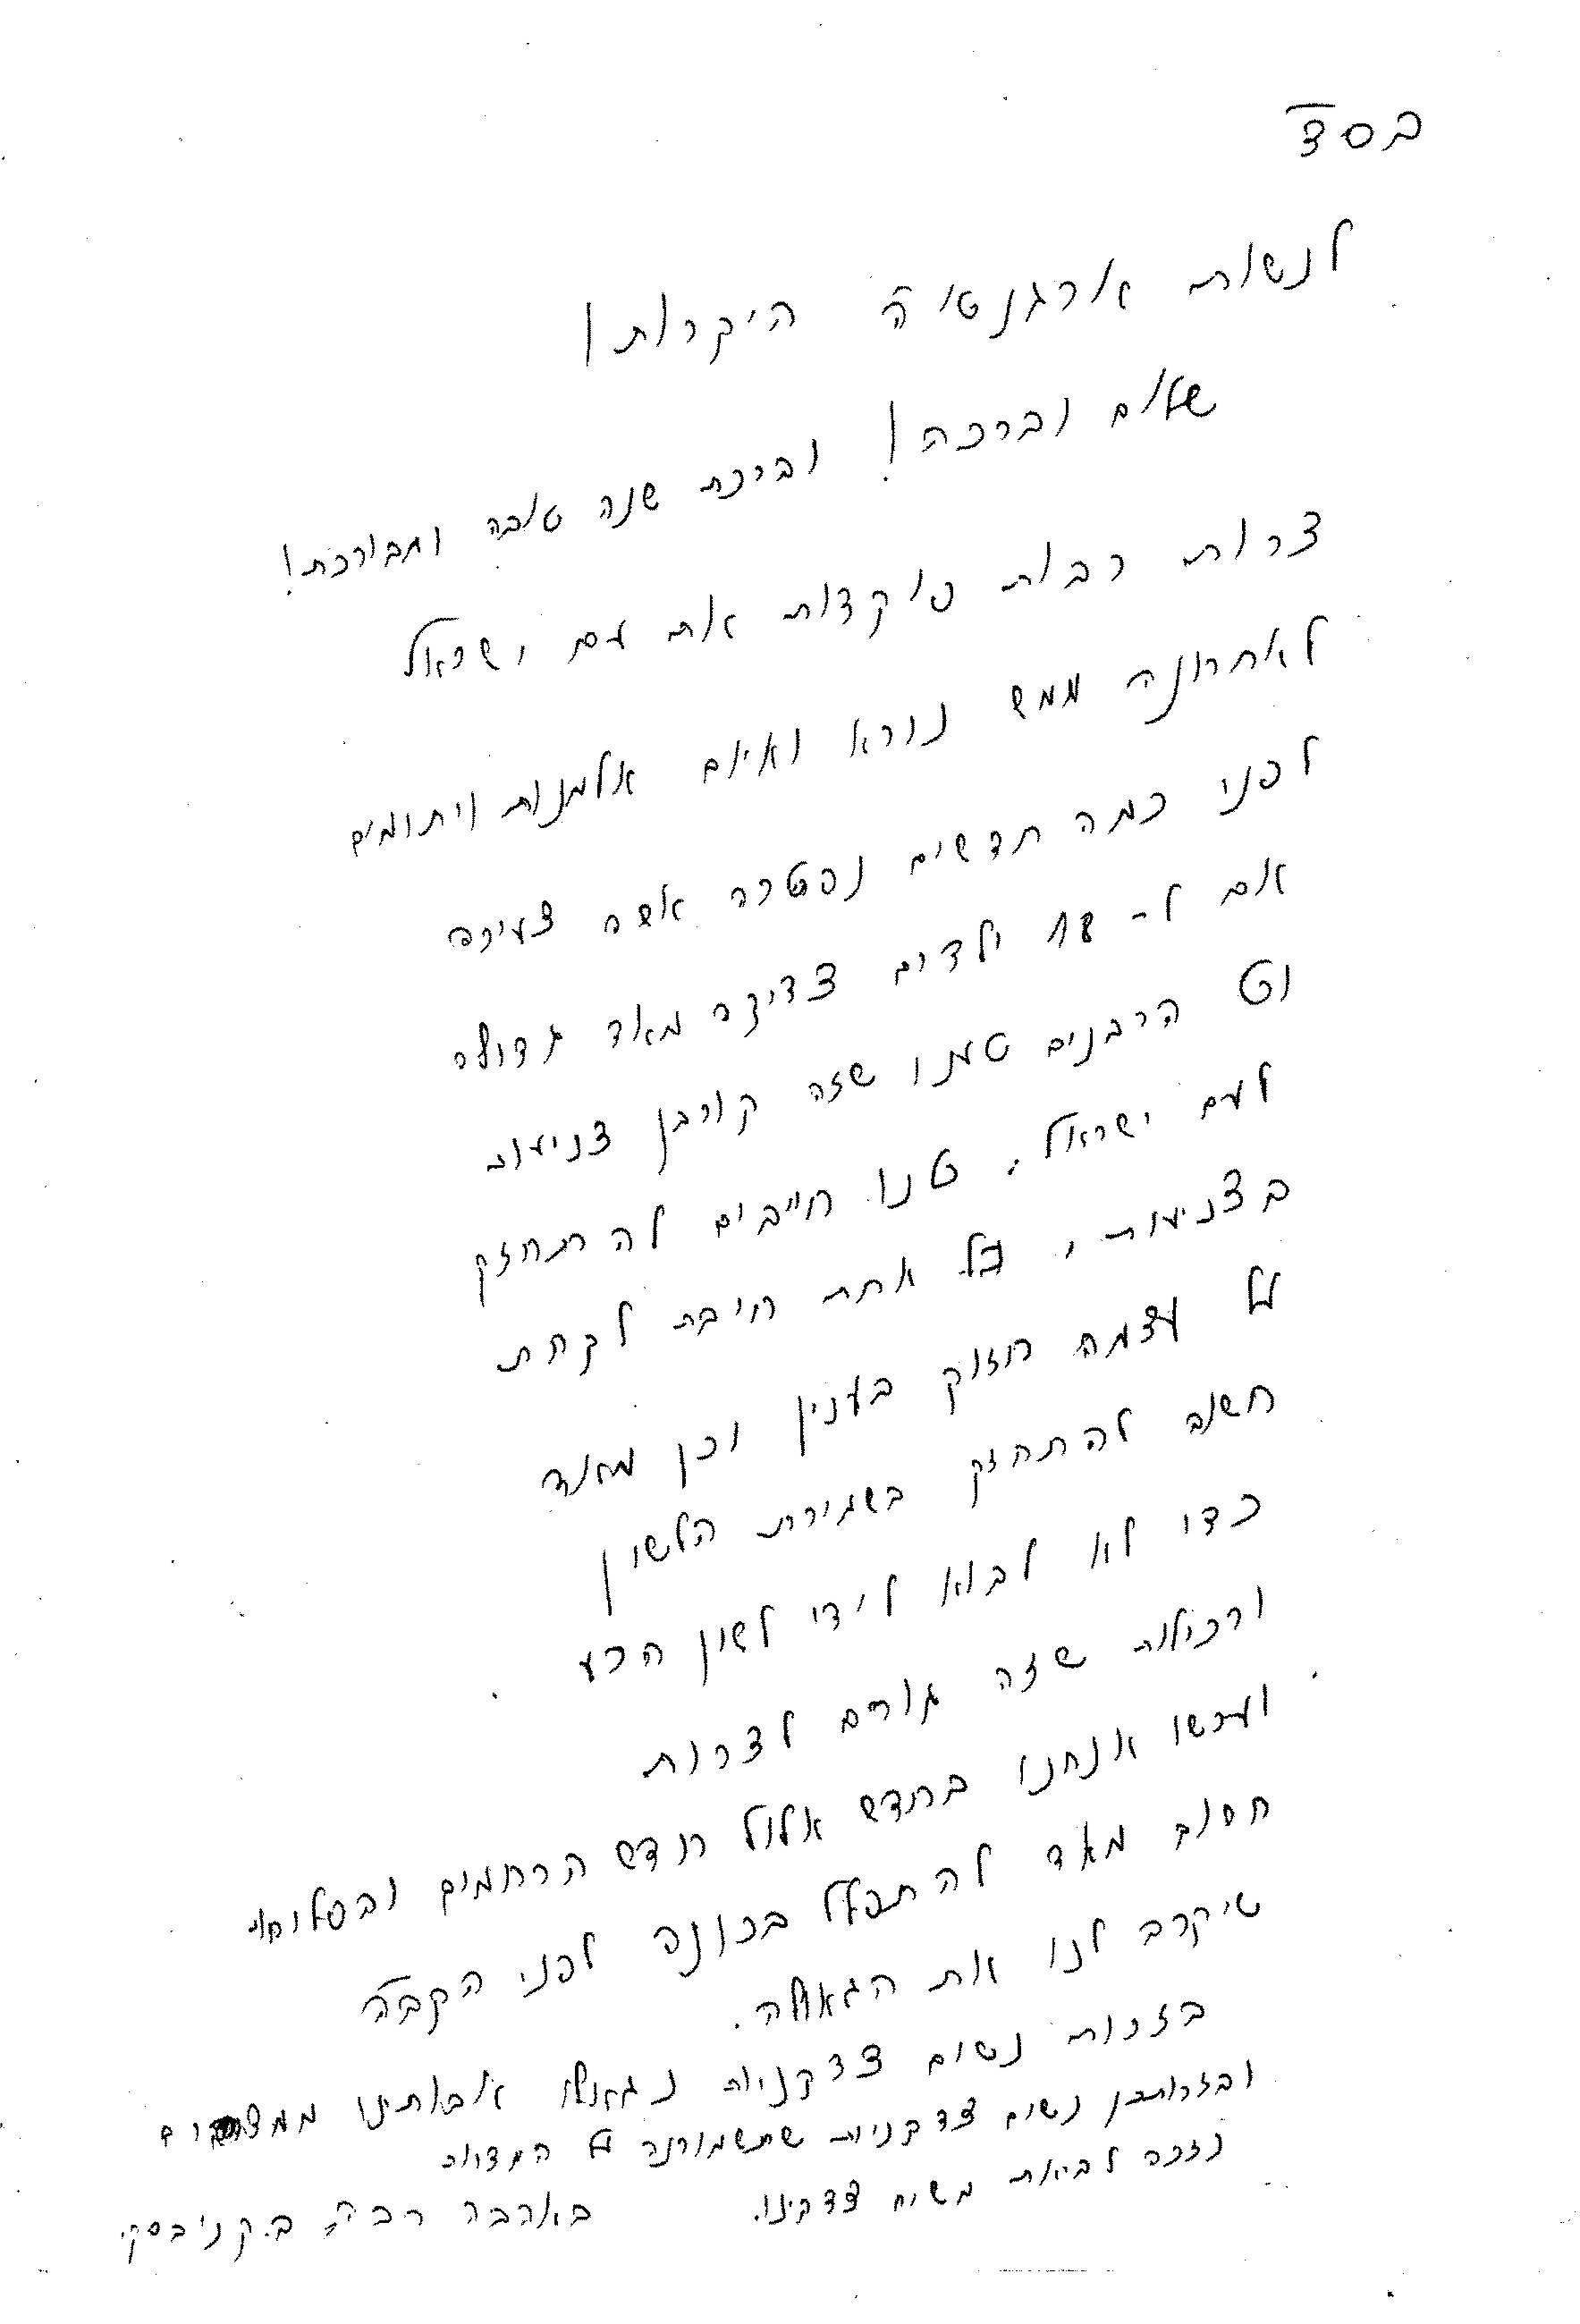 בסד
לנשות ארגנטיה היקרות!
שלום וברכה! וברכת שנה טובה ומבורכת!
צרות רבות פוקדות את עם ישראל
לאחרונה ממש נורא ואיום אלמנות ויתומים
לפני כמה חדשים נפטרה אשה צעירה
אם ל- 18 ילדים צדיקה מאד גדולה
וכל הרבנים טענו שזה קורבן צניעות
לעם ישראל. כולנו חייבים להתחזק
בצניעות, כל אחת חיבת לקחת
על עצמה חזוק בענין וכן מאוד
חשוב להתחזק בשמירת הלשון
כדי לא לבוא לידי לשון הרע.
ורכילות שזה גורם לצרות
ועכשו אנחנו בחדש אלול חדש הרחמים והסליחות
חשוב מאד להתפלל בכונה לפני הקבה
שיקרב לנו את הגאולה.
בזכות נשים צדקניות נגאלו אבותינו ממצרים
ובזכותכן נשים צדקניות שתשמורנה על המצוות
נזכה לביאת משיח צדקינו. באהבה רבה, ב.קניבסקי